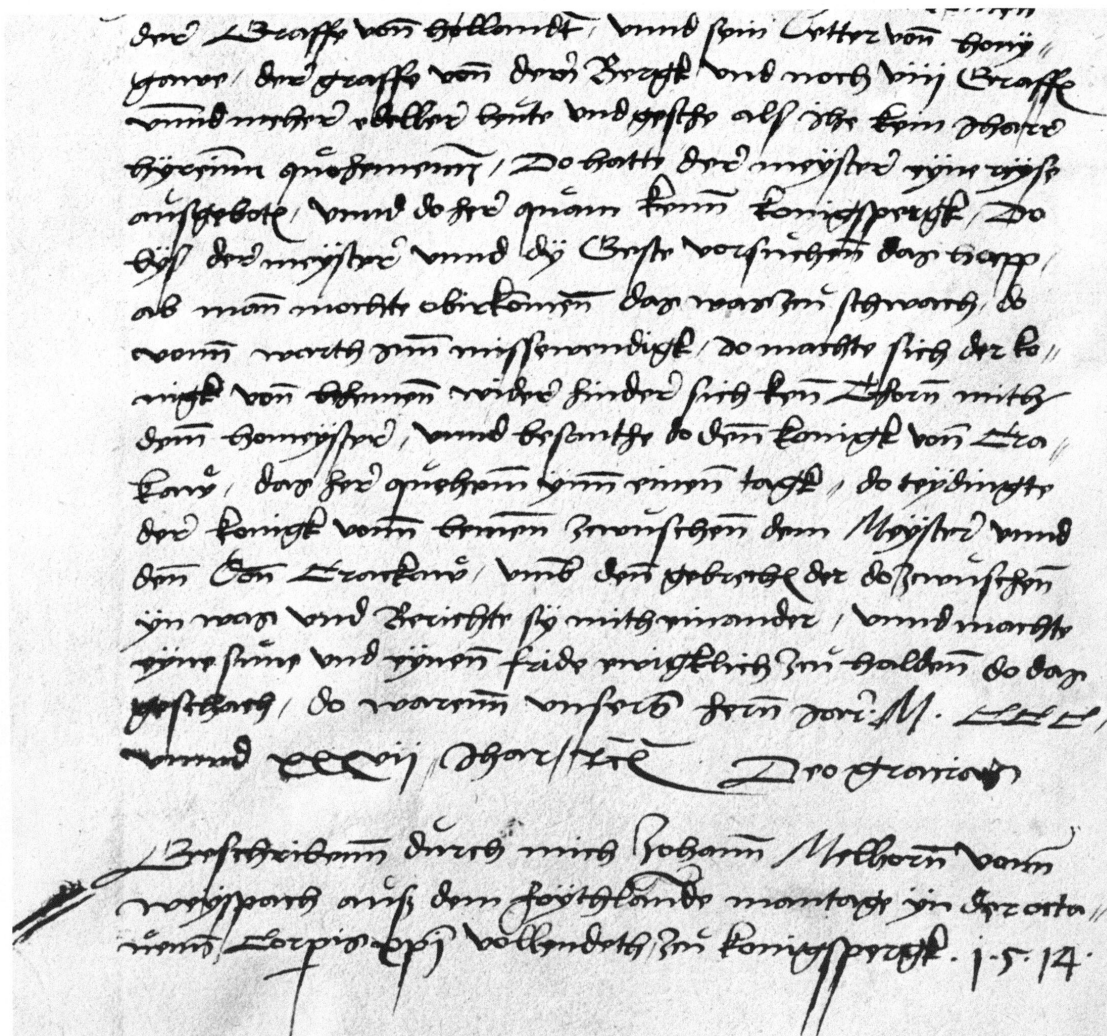 der Graffe vonn hollandt, vnnd sein Vetter vonn heny„
gawe, der graffe vonn dem Bergk vnd noch viii Graffen
vnnd meher edeller leute vnd geste als ihe kein Jharr
hyreinn quohemenn, Do hatte der meyster eyne reyse
ausgeboten, vnnd do her quam kenn konigspergk, Do
lys der meyster vnnd dy Geste vorsuchenn das haepp,
ab mann mochte obirkomenn das was zu schwach, do
vonn warth Inn missewendigk, do machte sich der ko„
nigk vonn behemenn wider hinder sich kenn Thorn mith
dem homeyster, vnnd besanthe do denn konigk vonn Cra„
kaw, das her quehemm ynn einenn tagk, do teydingte
der konigk vonn bemenn zcwuschenn dem Meyster vnnd
denn Vonn Crackaw, vmb denn gebrechen der do zcwuschenn
yn was vnd Berichte sy mith einander, vnnd machte
eyne sune vnd eynenn fride ewigklich zcu haldenn do das
geschach, do warenn vnsers hernn Jar M. CCC,
vnnd xxxvii Jhar, etc Deo gracias
Geschribenn durch mich Johann Melhorn vonn
weyspach aus dem foythlande mantage yn der octa„
uenn Corpis xpi vollendeth, zcu konigspergk. 1.5.14.